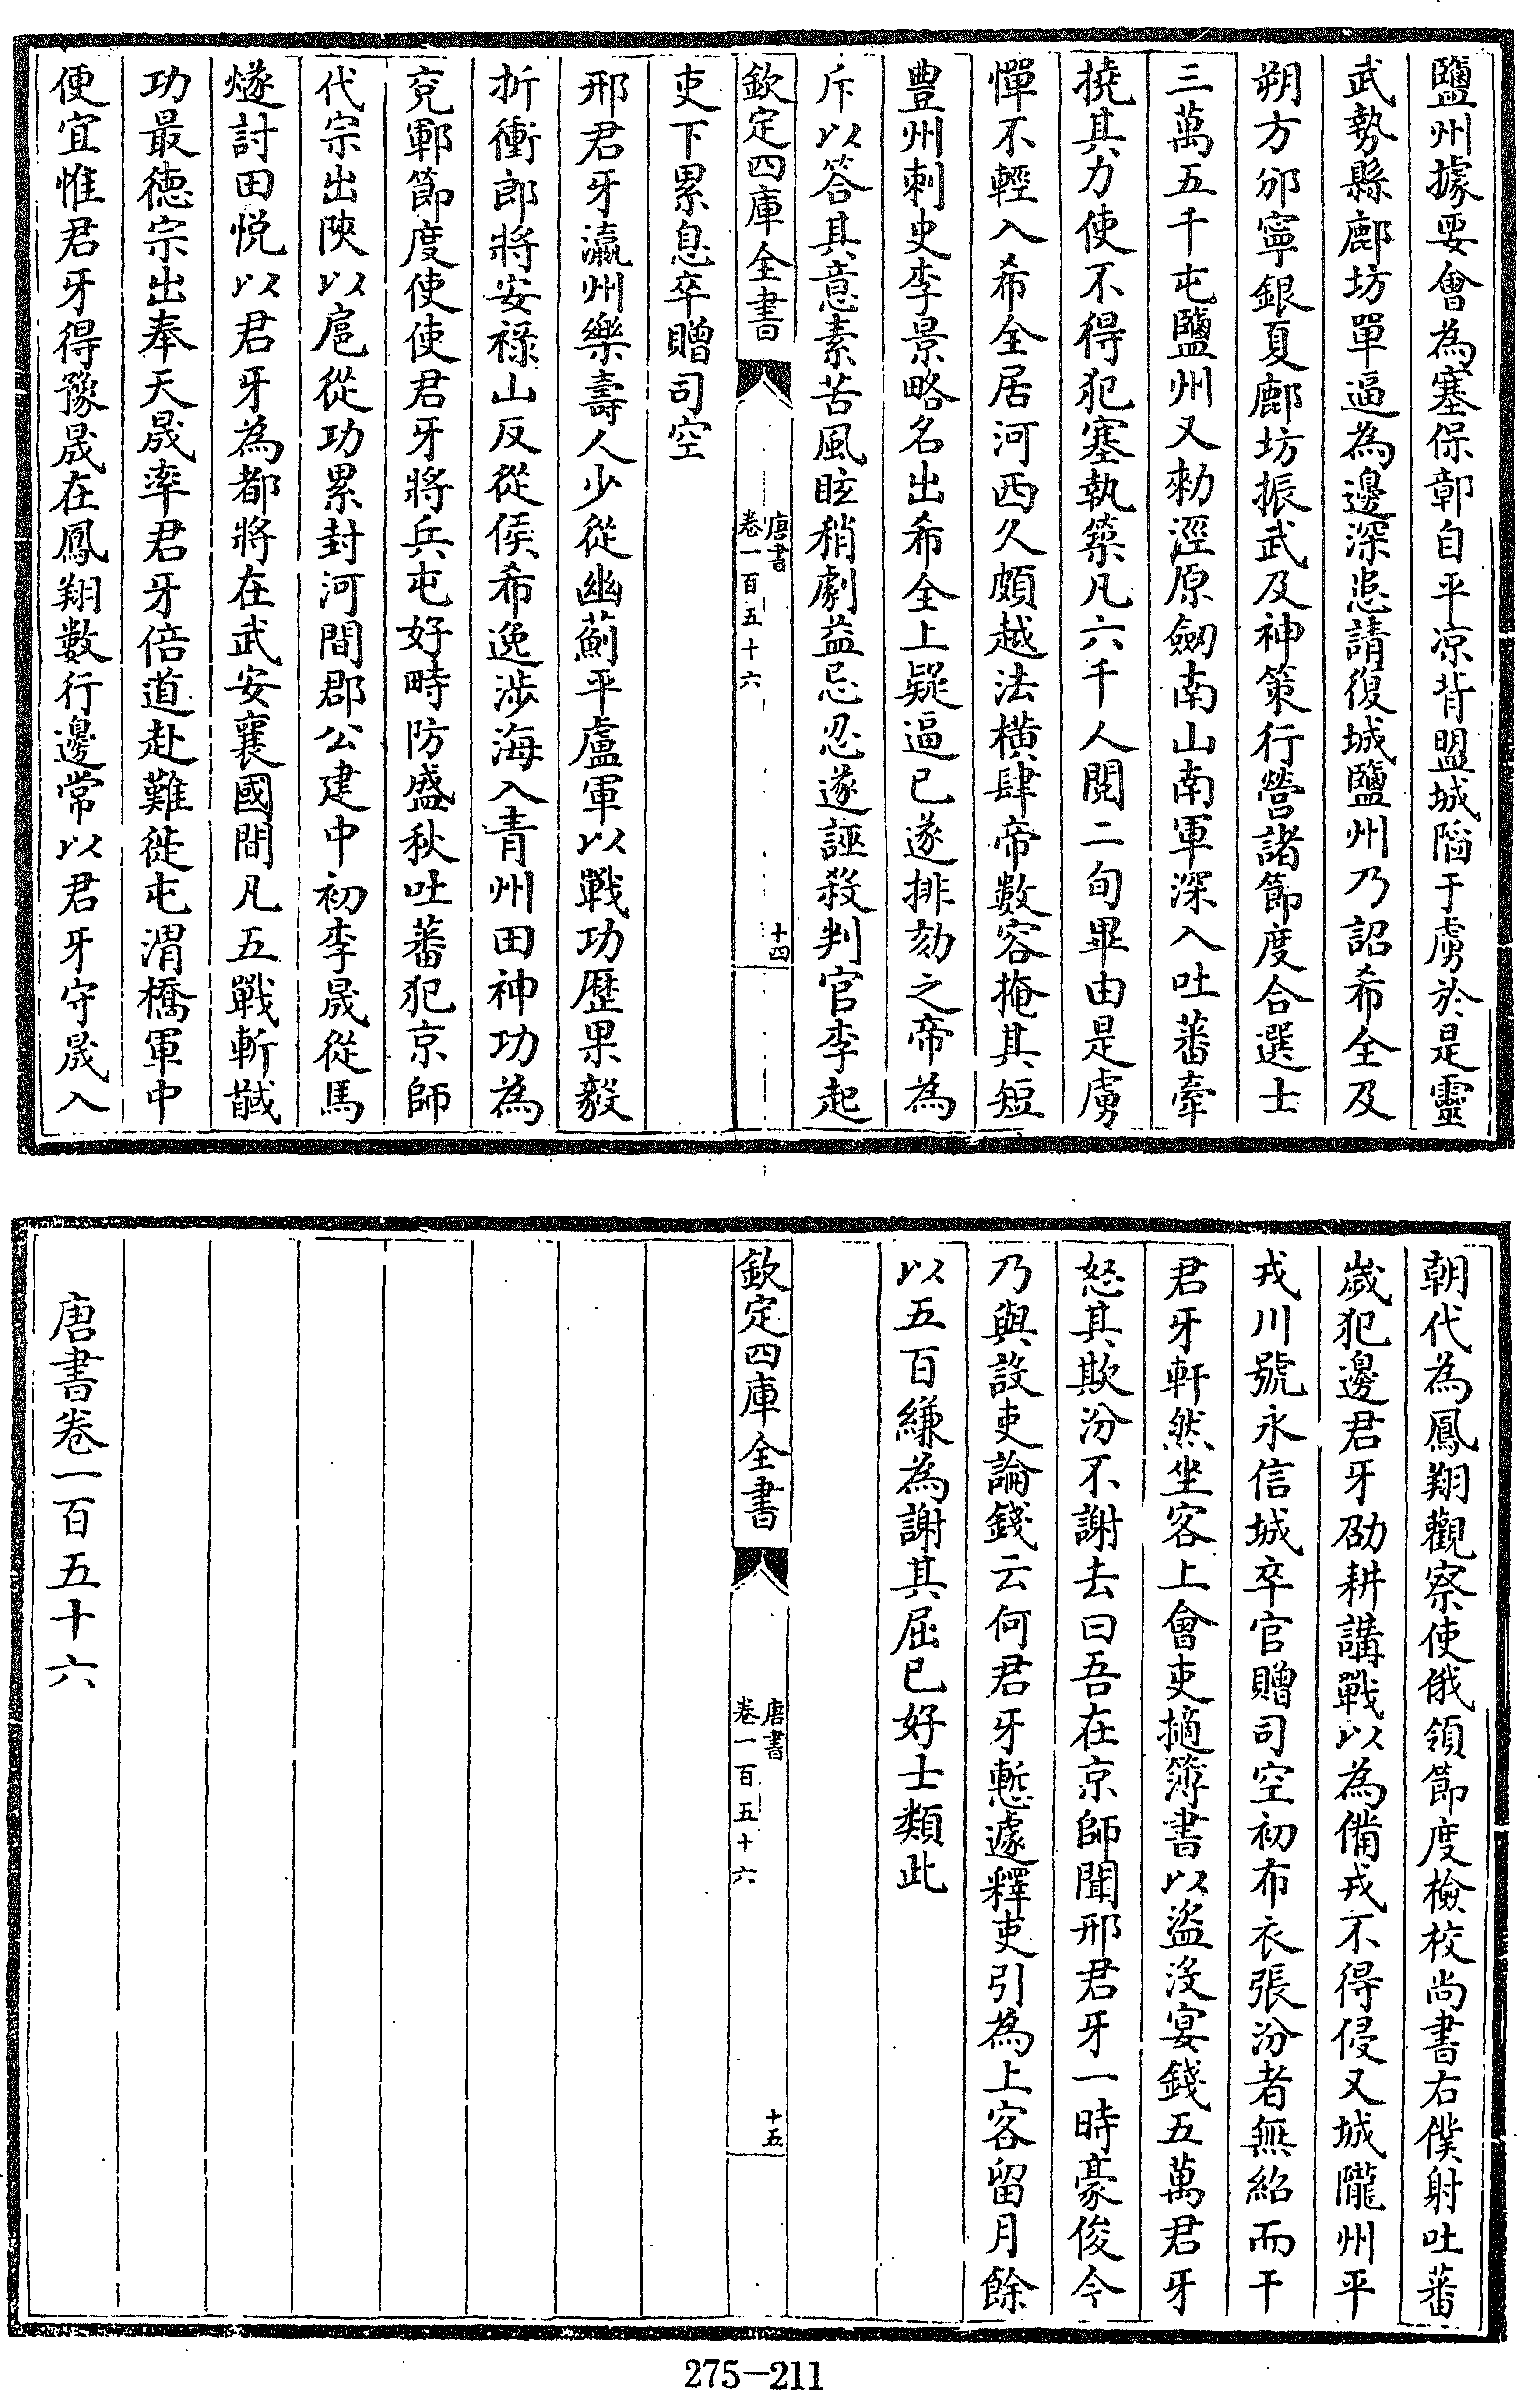 鹽州據要會為塞保鄣自平凉背盟城陷于虜於是靈
武勢縣鄜坊單逼為邊深患請復城鹽州乃詔希全及
朔方邠寧銀夏鄜坊振武及神策行營諸節度合選士
三萬五千屯鹽州又勑涇原劒南山南軍深入吐蕃牽
撓其力使不得犯塞執築凡六千人閱二旬畢由是虜
憚不輕入希全居河西久頗越法横肆帝數容掩其短
豐州刺史李景略名出希全上疑逼已遂排劾之帝為
斥以答其意素苦風眩稍劇益忌忍遂誣殺判官李起
欽定四庫全書
唐書
卷一百五十六
十四
吏下累息卒贈司空
邢君牙瀛州樂壽人少從幽薊平盧軍以戰功歷果毅
折衝郎將安祿山反從侯希逸涉海入青州田神功為
兗鄆節度使使君牙將兵屯好畤防盛秋吐蕃犯京師
代宗出陝以扈從功累封河間郡公建中初李晟從馬
燧討田悦以君牙為都將在武安襄國間凡五戰斬馘
功最德宗出奉天晟率君牙倍道赴難徙屯渭橋軍中
便宜惟君牙得豫晟在鳳翔數行邊常以君牙守晟入
朝代為鳳翔觀察使俄領節度檢校尚書右僕射吐蕃
歲犯邊君牙劭耕講戰以為備戎不得侵又城隴州平
戎川號永信城卒官贈司空初布衣張汾者無紹而干
君牙軒然坐客上會吏摘簿書以盜沒宴錢五萬君牙
怒其欺汾不謝去曰吾在京師聞邢君牙一時豪俊今
乃與設吏論錢云何君牙慙遽釋吏引為上客留月餘
以五百縑為謝其屈已好士類此
欽定四庫全書
唐書
卷一百五十六
十五
唐書卷一百五十六
275-211